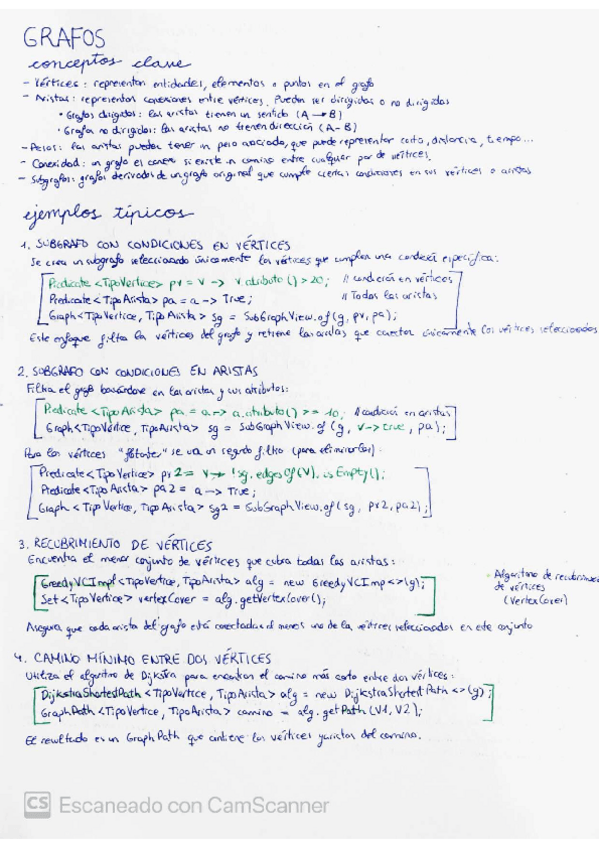 GRAFOS
conceptos clave
- Vértices: representan entidades, elementos o puntos en el grafo
- Aristas: representan conexiones entre vértices. Pueden ser dirigidas o no dirigidas
• Grafos dirigidos: las aristas tienen un sentido (A → B)
• Grafos no dirigidos: las aristas no tienen dirección (A - B)
- Pesos: las aristas pueden tener un peso asociado, que puede representar costo, distancia, tiempo...
- Conexidad: un grafo es conexo si existe un camino entre cualquier par de vértices.
- Subgrafos: grafos derivados de un grafo original que cumple ciertas condiciones en sus vértices o aristas
ejemplos típicos
1. SUBGRAFO CON CONDICIONES EN VÉRTICES
Se crea un subgrafo seleccionando únicamente los vértices que cumplen una condición específica:
Predicate<TipoVertice> pv = v -> v.atributo() > 20; // condición en vértices
Predicate<TipoArista> pa = a -> True; // Todas las aristas
Graph<TipoVertice, TipoArista> sg = SubGraphView.of(g, pv, pa);
Este enfoque filtra los vértices del grafo y retiene las aristas que conectan únicamente los vértices seleccionados
2. SUBGRAFO CON CONDICIONES EN ARISTAS
Filtra el grafo basándose en las aristas y sus atributos:
Predicate<TipoArista> pa = a -> a.atributo() >= 10; // condición en aristas
Graph<TipoVertice, TipoArista> sg = SubGraphView.of(g, v->true, pa);
Para los vértices "flotantes" se usa un segundo filtro (para eliminarlos):
Predicate<TipoVertice> pv2 = v -> !sg.edgesOf(v).isEmpty();
Predicate<TipoArista> pa2 = a -> True;
Graph <TipoVertice, TipoArista> sg2 = SubGraphView.of(sg, pv2, pa2);
3. RECUBRIMIENTO DE VÉRTICES
Encuentra el menor conjunto de vértices que cubra todas las aristas:
GreedyVCImpl<TipoVertice, TipoArista> alg = new GreedyVCImp<>(g);
Set<TipoVertice> vertexCover = alg.getVertexCover();
Algoritmo de recubrimiento
de vértices
(VertexCover)
Asegura que cada arista del grafo está conectada al menos uno de los vértices seleccionados en este conjunto
4. CAMINO MÍNIMO ENTRE DOS VÉRTICES
Utiliza el algoritmo de Dijkstra para encontrar el camino más corto entre dos vértices:
DijkstraShortestPath<TipoVertice, TipoArista> alg = new DijkstraShortestPath<>(g);
GraphPath<TipoVertice, TipoArista> camino = alg.getPath(V1, V2);
El resultado es un GraphPath que contiene los vértices y aristas del camino.
CS Escaneado con CamScanner